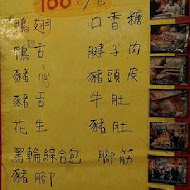 100
鴨翅 口香糖
鴨舌 腱子肉
豬心 豬頭皮
豬舌 牛肚
花生 豬肚
黑輪綜合包 腳筋
豬腳